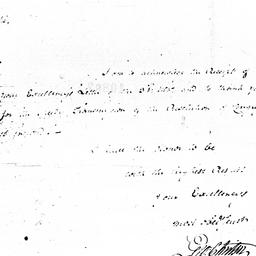 I am to acknowledge the Receipt of
your Excellency's Letter of the and to thank you
for the Transmission of the Resolution of Congress
I have the honor to be
with the highest Respect
Your Excellency's
most Obed Servt
Geo Clinton